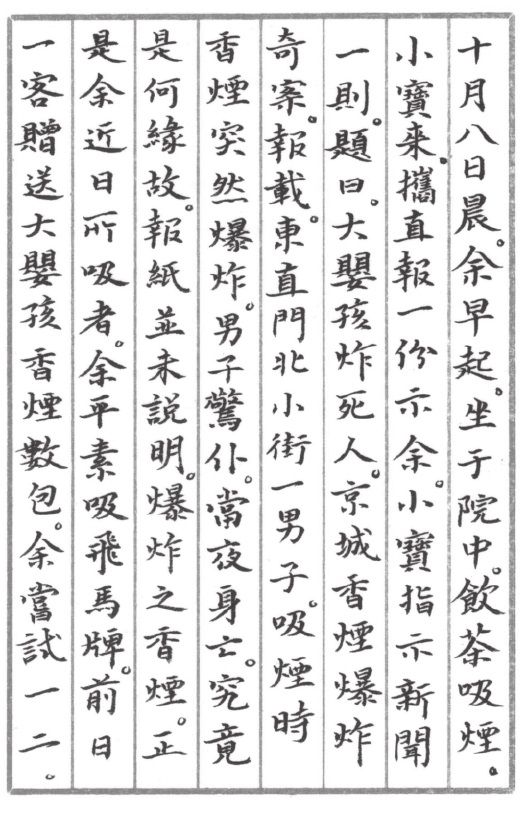 十月八日晨。余早起。坐于院中。飲茶吸煙。
小寶来。攜直報一份示余。小寶指示新聞
一則。題曰。大嬰孩炸死人。京城香煙爆炸
奇案。報載。東直門北小街一男子。吸煙時
香煙突然爆炸。男子驚仆。當夜身亡。究竟
是何緣故。報紙並未説明。爆炸之香煙。正
是余近日所吸者。余平素吸飛馬牌。前日
一客贈送大嬰孩香煙數包。余嘗試一二。